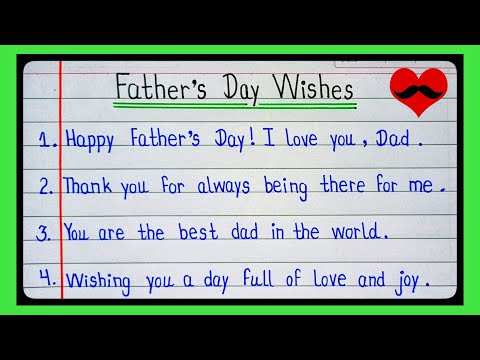 Father's Day Wishes
1. Happy Father's Day! I love you, Dad.
2. Thank you for always being there for me.
3. You are the best dad in the world.
4. Wishing you a day full of love and joy.